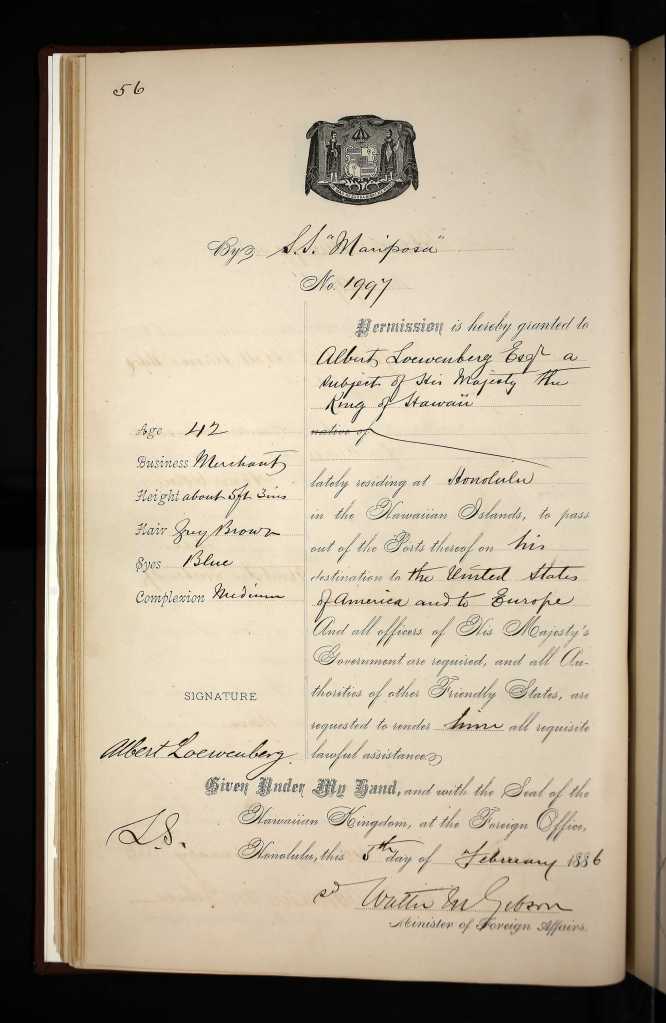 56
By S.S. "Mariposa"
No. 1997
Permission is hereby granted to
Albert Loewenberg Esqr a
subject of His Majesty the
King of Hawaii
native of
lately residing at Honolulu
in the Hawaiian Islands, to pass
out of the Ports thereof on his
destination to the United States
of America and to Europe
And all officers of His Majesty's
Government are required, and all Au-
thorities of other Friendly States, are
requested to render him all requisite
lawful assistance
Age 42
Business Merchant
Height about 5ft 3ins
Hair Grey Brown
Eyes Blue
Complexion Medium
SIGNATURE
Albert Loewenberg
Given Under My Hand, and with the Seal of the
Hawaiian Kingdom, at the Foreign Office,
Honolulu, this 5th day of February 1886
L.S.
sd Walter M Gibson
Minister of Foreign Affairs.